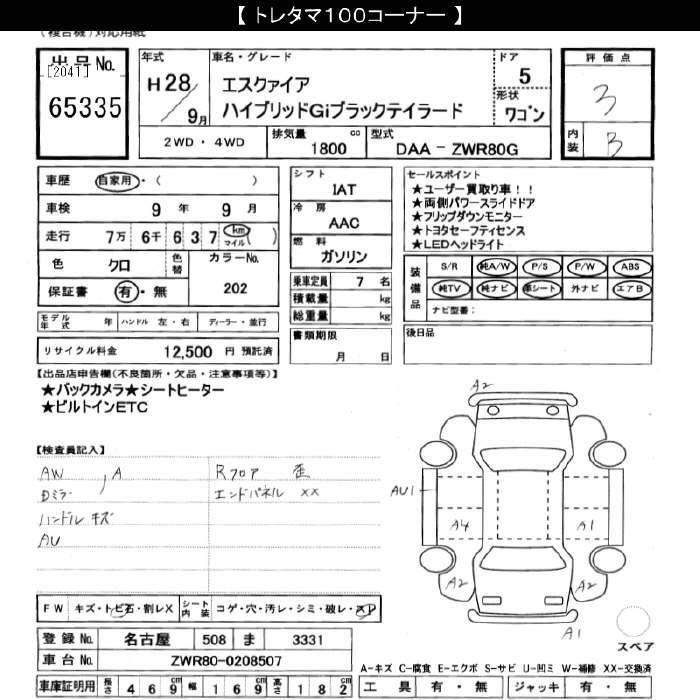 【 トレタマ１００コーナー 】
(複合機)対応用紙
出品No.
[2041]
65335
年式
H28
9月
車名・グレード
エスクァイア
ハイブリッドGiブラックテイラード
ドア
5
形状
ワゴン
2WD・4WD
排気量
1800
cc
型式
DAA－ZWR80G
評価点
3
内装
B
車歴
自家用・( )
車検
9 年 9 月
走行
7万 6千 6 3 7 km ( )
マイル
色
クロ
色替
カラーNo.
202
保証書
有・無
モデル年式
年
ハンドル 左・右
ディーラー・並行
リサイクル料金 12,500 円 預託済
シフト
IAT
冷房
AAC
燃料
ガソリン
乗車定員 7 名
積載量 kg
総重量 kg
書類期限
月 日
セールスポイント
★ユーザー買取り車！！
★両側パワースライドドア
★フリップダウンモニター
★トヨタセーフティセンス
★LEDヘッドライト
装備品
S/R 純A/W P/S P/W ABS
純TV 純ナビ 革シート 外ナビ エアB
ナビ型番：
後日品
【出品店申告欄(不良箇所・欠品・注意事項等)】
★バックカメラ★シートヒーター
★ビルトインETC
【検査員記入】
AW , A
Dミラー
ハンドル キズ
AU
Rフロア 歪
エンドパネル XX
A2
AU1
A4
A1
A2
A2
A1
スペア
FW キズ・トビ石・割レX
シート内装
コゲ・穴・汚レ・シミ・破レ・スレ
登録No. 名古屋 508 ま 3331
車台No. ZWR80-0208507
車庫証明用 長さ 469cm 幅 169cm 高さ 182cm
A-キズ C-腐食 E-エクボ S-サビ U-凹ミ W-補修 XX-交換済
工具 有・無 ジャッキ 有・無